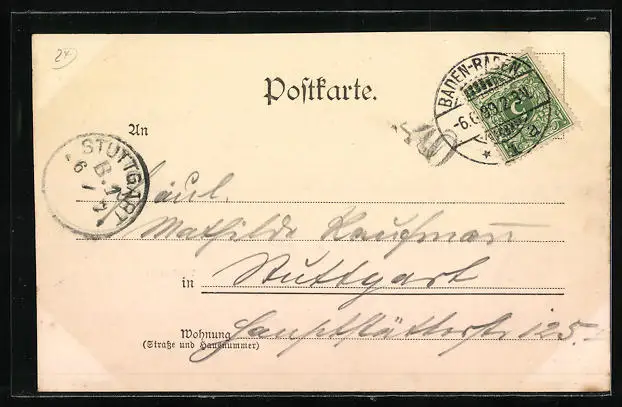 24
Postkarte.
BADEN-BADEN
-6.
An
STUTTGART
B.
6
1
Fräul.
Mathilde Kaufmann
in Stuttgart
Wohnung Hauptstätterstr 125.
(Straße und Hausnummer)